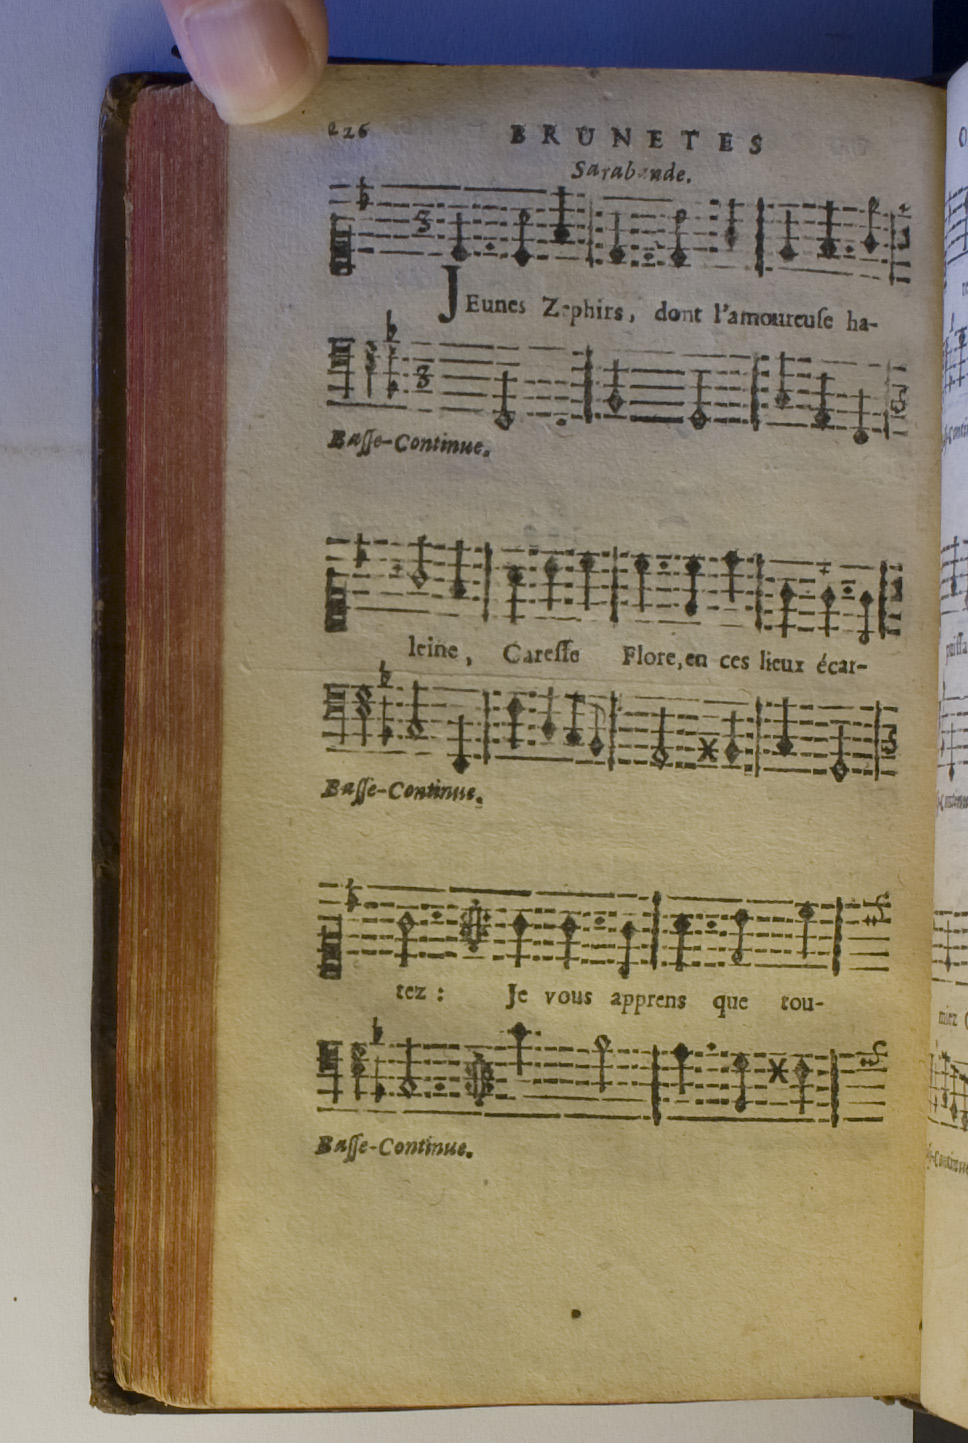 226
BRUNETES
Sarabande.
JEunes Zephirs, dont l'amoureuſe ha-
Baſſe-Continue.
leine, Careſſe Flore, en ces lieux écar-
Baſſe-Continue.
tez : Je vous apprens que tou-
Baſſe-Continue.